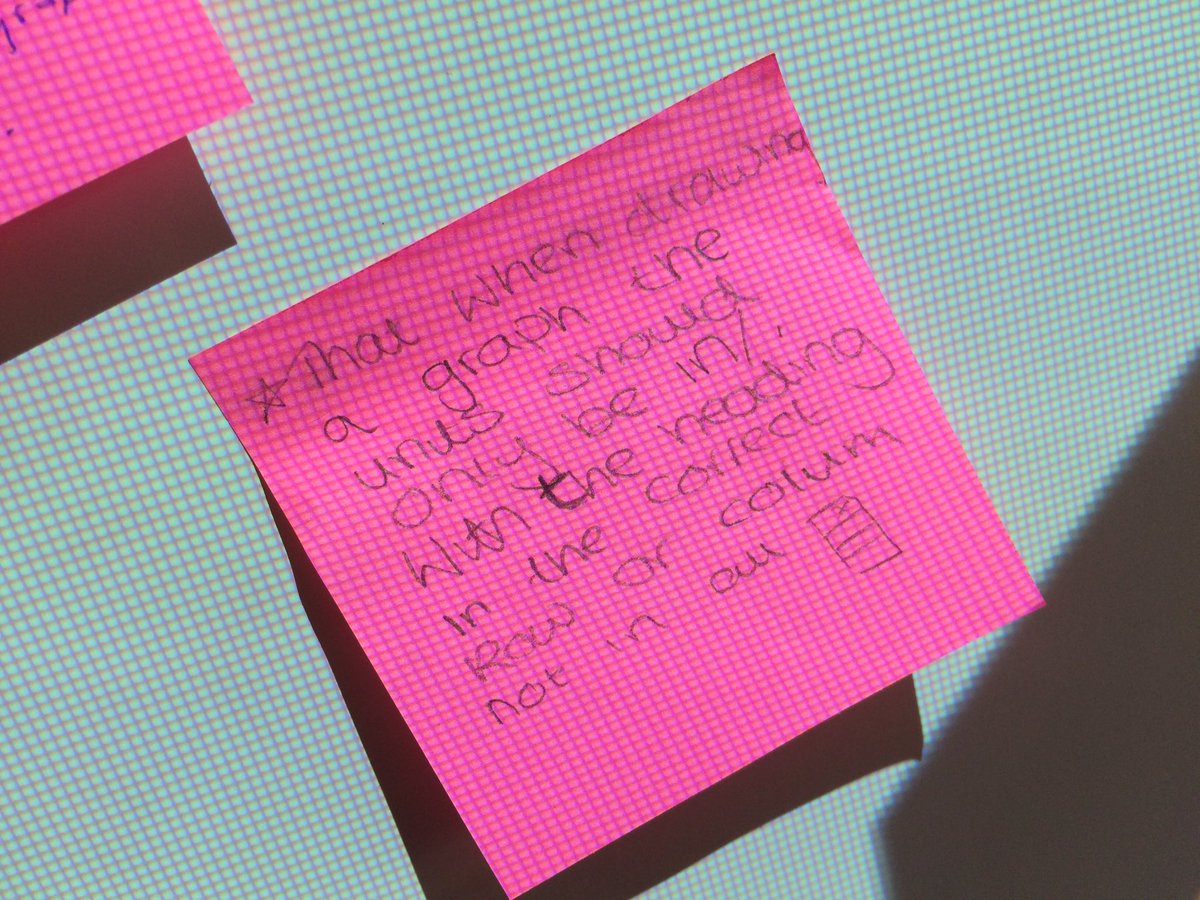 ☆ That when drawing
a graph the
units should
only be in/
with the heading
in the correct
Row or colum
not in all